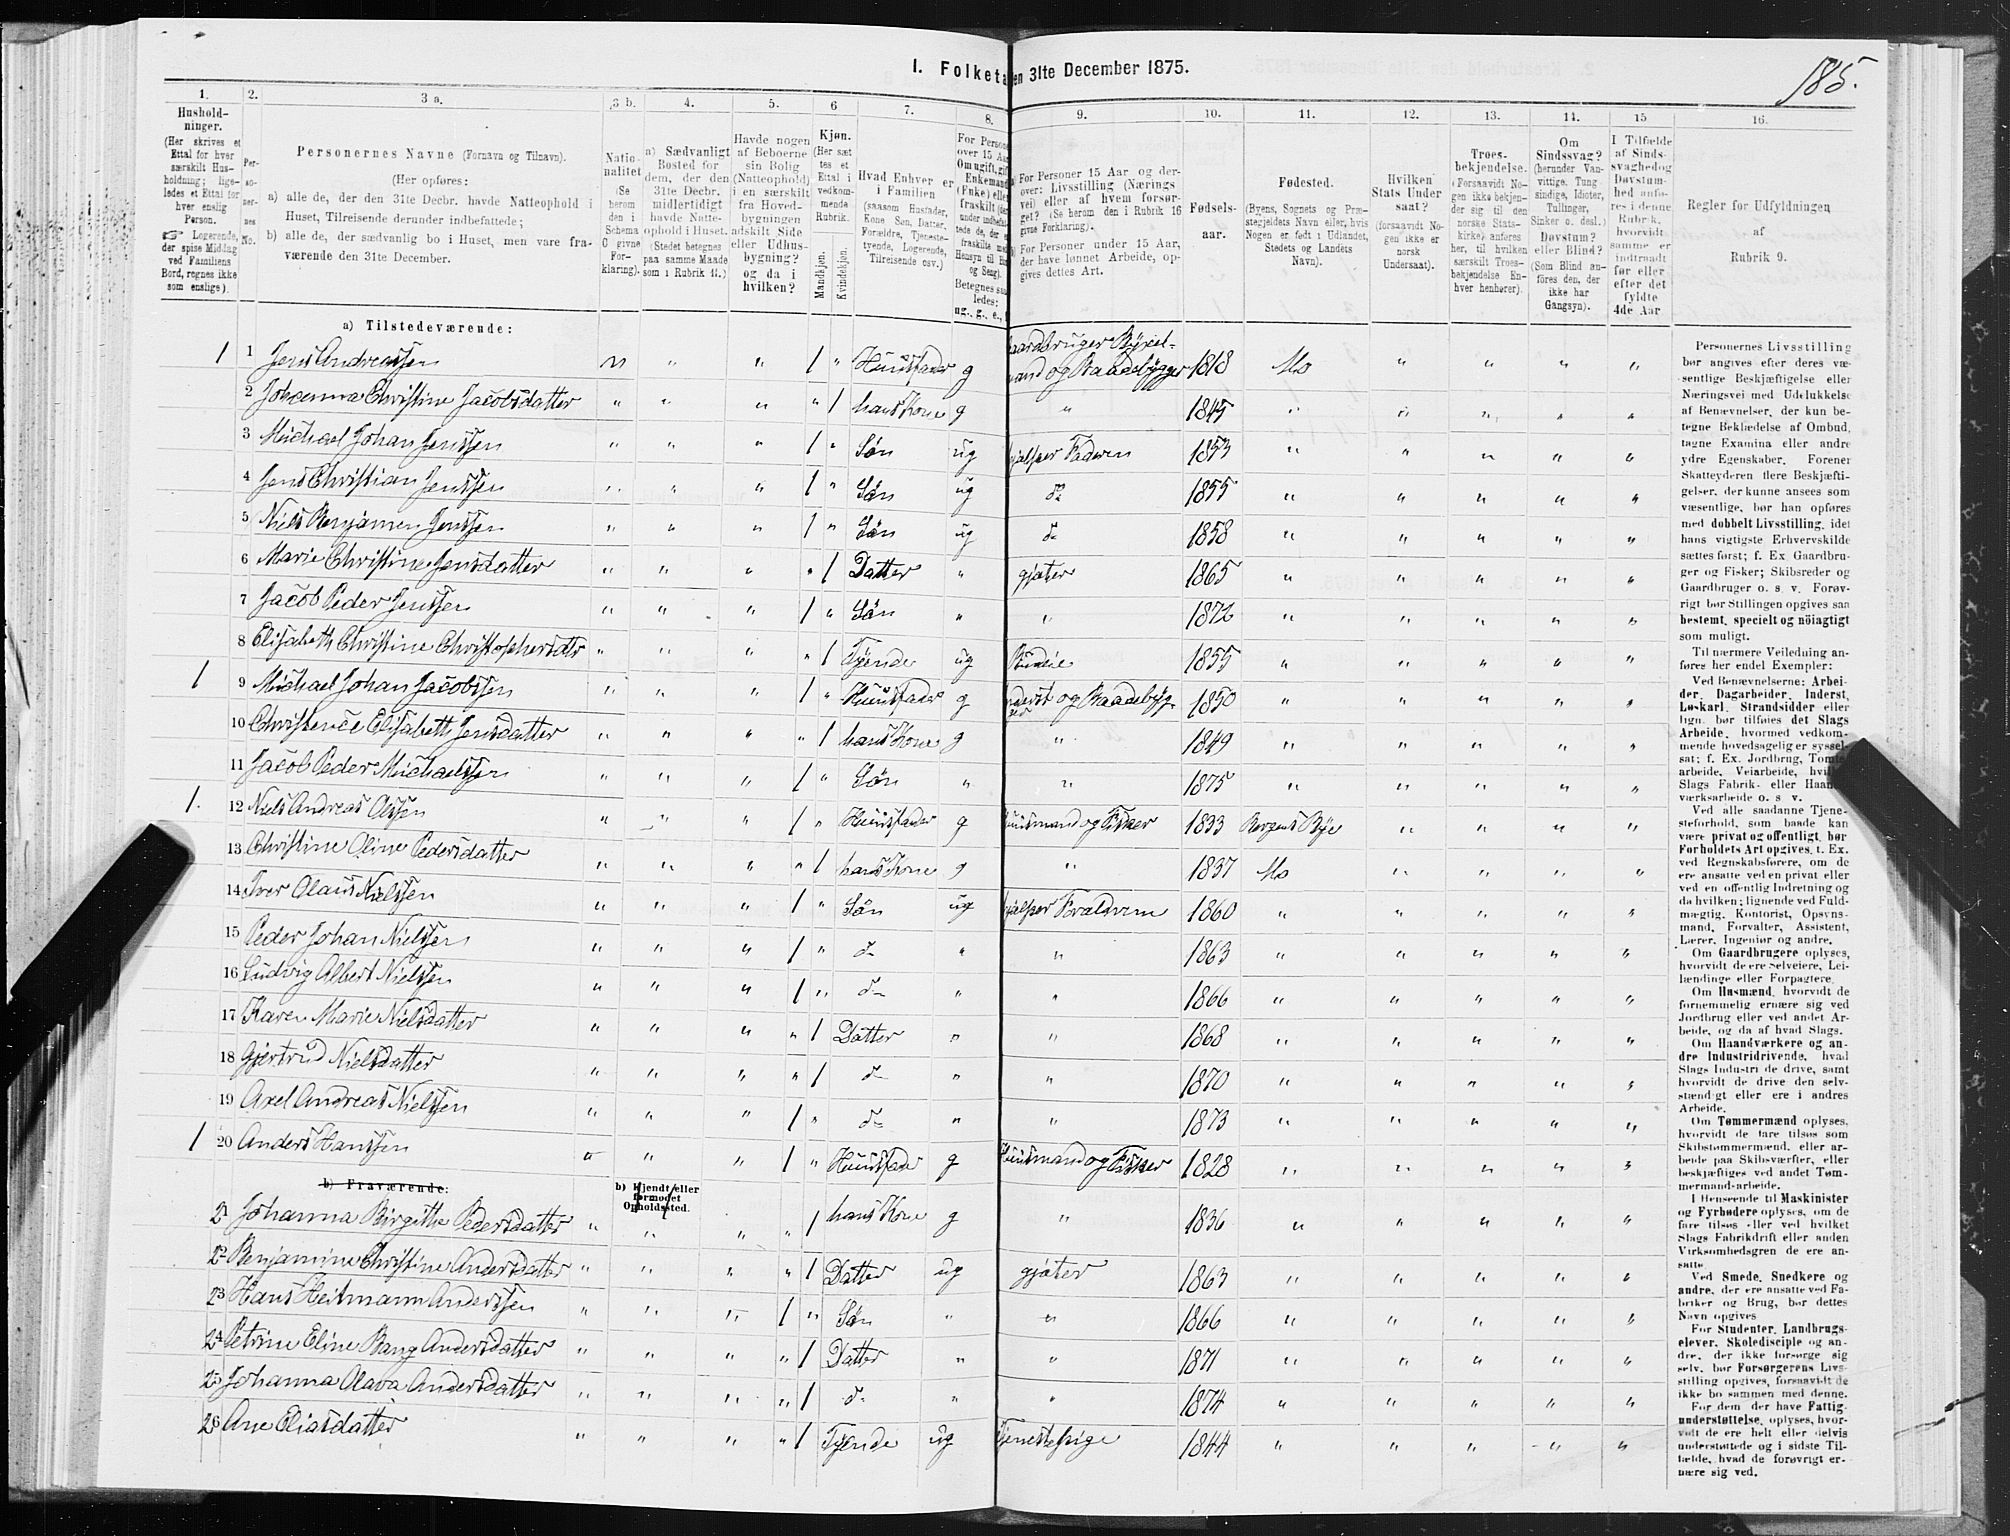 185.
I. Folketa en 31te December 1875.
1. 2. 3 a. 3 b. 4. 5. 6 7. 8. 9. 10. 11. 12. 13. 14. 15 16.
Hushold-
ninger.
(Her skrives et
Ettal for hver
særskilt Hus-
holdning; lige-
ledes et Ettal for
hver enslig
Person.
☞ Logerende,
der spise Middag
ved Familiens
Bord, regnes ikke
som enslige).
Per-
so-
ner-
nes
No.
Personernes Navne (Fornavn og Tilnavn).
(Her opføres:
a) alle de, der den 31te Decbr. havde Natteophold i
Huset, Tilreisende derunder indbefattede;
b) alle de, der sædvanlig bo i Huset, men vare fra-
værende den 31te December.
Natio-
nalitet
(Se
herom
den i
Schema
O givne
For-
klaring).
a) Sædvanligt
Bosted for
dem, der den
31te Decbr.
midlertidigt
havde Natte-
ophold i Huset.
(Stedet betegnes
paa samme Maade
som i Rubrik 11.)
Havde nogen
af Beboerne
sin Bolig
(Natteophold)
i en særskilt
fra Hoved-
bygningen
adskilt Side
eller Udhus-
bygning?
og da i
hvilken?
Kjøn.
(Her sæt
tes et
Ettal i
vedkom-
mende
Rubrik.
Mandkjøn.
Kvindekjøn.
Hvad Enhver er
i Familien
(saasom Husfader,
Kone Søn, Datter,
Forældre, Tjeneste-
tyende, Logerende,
Tilreisende osv.)
For Person
over 15 Aa
Om ugift, gif
Enkemand
(Enke) elle
fraskilt (de
under indbefa
tede de, der e
fraskilte me
Hensyn til B
og Seng).
Betegnes saa
ledes:
ug., g., e.,
For Personer 15 Aar og der-
over: Livsstilling (Nærings
vei) eller af hvem forsør-
get? (Se herom den i Rubrik 16
givne Forklaring).
For Personer under 15 Aar,
der have lønnet Arbeide, op-
gives dettes Art.
Fødsels-
aar.
Fødested.
(Byens, Sognets og Præ-
stegjeldets Navn eller, hvis
Nogen er født i Udlandet,
Stedets og Landets
Navn).
Hvilken
Stats Under
saat?
(forsaavidt No-
gen ikke er
norsk
Undersaat).
Troes-
bekjendelse.
(Forsaavidt No-
gen ikke bekjen-
der sig til den
norske Stats-
kirke) anføres
her, til hvilken
særskilt Troes-
bekjendelse En-
hver henhører).
Om
Sindssvag?
(herunder Van-
vittige. Tung
sindige, Idioter,
Tullinger,
Sinker o. desl.)
Døvstum?
eller Blind?
(Som Blind an-
føres den, der
ikke har
Gangsyn).
I Tilfælde
af Sinds-
svaghed og
Døvstum-
hed anfø-
res i denne
Rubrik.
hvorvidt
samme er
indtraadt
før eller
efter det
fyldte
4de Aar
Regler for Udfyldningen
af
Rubrik 9.
a) Tilstedeværende:
1 1 Jens Andreassen n " " 1 " Huusfader g aardbruger Byxel-
mand og Baadebygger 1818 Mo " " " "
2 Johanna Christine Jacobsdatter " " " " 1 hans Kone g " 1845 " " " " "
3 Michael Johan Jenssen " " " 1 " Søn ug hjælper Faderen 1853 " " " " "
4 Jens Christian Jenssen " " " 1 " Søn ug do 1855 " " " " "
5 Niels Benjamen Jenssen " " " 1 " Søn ug d- 1858 " " " " "
6 Marie Christine Jensdatter " " " " 1 Datter " gjæter 1865 " " " " "
7 Jacob Peder Jenssen " " " 1 " Søn " " 1872 " " " " "
8 Elisabeth Christine Christophersdtr " " " " 1 Tyende ug Budeie 1855 " " " " "
1 9 Michael Johan Jacobssen " " " 1 " Huusfader g Inderst og Baadebyg-
ger 1850 " " " " "
10 Christence Elisabeth Jensdatter " " " " 1 hans Kone g " 1849 " " " " "
11 Jacob Peder Michaelssen " " " 1 " Søn " " 1875 " " " " "
1. 12 Niels Andreas Olssen " " " 1 " Huusfader g Huusmand og Fisker 1833 Bergens Bye " " " "
13 Christine Oline Pedersdatter " " " " 1 hans Kone g " 1837 Mo " " " "
14 Iver Olaus Nielssen " " " 1 " Søn ug hjælper Forældrene 1860 " " " " "
15 Peder Johan Nielssen " " " 1 " d- " " 1863 " " " " "
16 Ludvig Albert Nielssen " " " 1 " d- " " 1866 " " " " "
17 Karen Marie Nielsdatter " " " " 1 Datter " " 1868 " " " " "
18 Gjertrud Nielsdatter " " " " 1 d- " " 1870 " " " " "
19 Axel Andreas Nielssen " " " 1 " d- " " 1873 " " " " "
1 20 Anders Hanssen " " " 1 " Huusfader g Huusmand og Fisker 1828 " " " " "
b) Fraværende: b) Kjendt eller
formodet
Opholdssted.
21 Johanna Birgitha Pedersdatter " " " " 1 hans Kone g " 1836 " " " " "
22 Benjamine Christine Andersdatter " " " " 1 Datter ug gjæter 1863 " " " " "
23 Hans Heitmann Anderssen " " " 1 " Søn " " 1866 " " " " "
24 Petrine Eline Bang Andersdatter " " " " 1 Datter " " 1871 " " " " "
25 Johanna Olava Andersdatter " " " " 1 d- " " 1874 " " " " "
26 Ane Eliasdatter " " " " 1 Tyende ug Tjenestepige 1844 " " " " "
Personernes Livsstilling
bør angives efter deres væ-
sentlige Beskjæftigelse eller
Næringsvei med Udelukkelse
af Benævnelser, der kun be-
tegne Beklædelse af Ombud,
tagne Examina eller andre
ydre Egenskaber. Forener
Skatteyderen flere Beskjæfti-
gelser, der kunne ansees som
væsentlige, bør han opføres
med dobbelt Livsstilling, idet
hans vigtigste Erhvervskilde
sættes først; f. Ex Gaardbru-
ger og Fisker; Skibsreder og
Gaardbruger o. s. v. Forøv-
rigt bør Stillingen opgives saa
bestemt, specielt og nöiagtigt
som muligt.
Til nærmere Veiledning an-
føres her endel Exempler:
Ved Benævnelserne: Arbei-
der, Dagarbeider, Inderst,
Løskarl, Strandsidder eller
lign. bør tilføies det Slags
Arbeide, hvormed vedkom-
mende hovedsagelig er syssel-
sat; f. Ex. Jordbrug, Tomte
arbeide, Veiarbeide, hvil
Slags Fabrik- eller Haan
værksarbeide o. s. v.
Ved alle saadanne Tjene-
steforhold, som baade kan
være privat og offentligt, bør
Forholdets Art opgives, t. Ex.
ved Regnskabsførere, om de
ere ansatte ved en privat eller
ved en offentlig Indretning og
da hvilken; lignende ved Fuld-
mægtig, Kontorist, Opsyns-
mand, Forvalter, Assistent,
Lærer, Ingeniør og andre.
Om Gaardbrugere oplyses,
hvorvidt de ere Selveiere, Lei-
lændinge eller Forpagtere.
Om Husmænd, hvorvidt de
fornemmelig ernære sig ved
Jordbrug eller ved andet Ar-
beide, og da af hvad Slags.
Om Haandværkere og an-
dre Industridrivende, hvad
Slags Industri de drive, samt
hvorvidt de drive den selv-
stændigt eller ere i andres
Arbeide.
Om Tømmermænd oplyses,
hvorvidt de fare tilsøs som
Skibstømmermænd, eller ar-
beide paa Skibsværfter, eller
beskjæftiges ved andet Tøm-
mermand-arbeide.
I Henseende til Maskinister
og Fyrbødere oplyses, om de
fare tilsøs eller ved hvilket
Slags Fabrikdrift eller anden
Virksomhedsgren de ere an-
satte
Ved Smede, Snedkere og
andre, der ere ansatte ved Fa-
briker og Brug, bør dettes
Navn opgives
For Studenter, Landbrugs-
elever, Skoledisciple og an-
dre, der ikke forsørge sig
selv, bør Forsørgerens Livs-
stilling opgives, forsaavidt de
ikke bo sammen med denne.
For dem, der have Fattig-
understøttelse, oplyses, hvor-
vidt de ere helt eller delvis
understøttede og i sidste Til-
fælde, hvad de forøvrigt er-
nære sig ved.